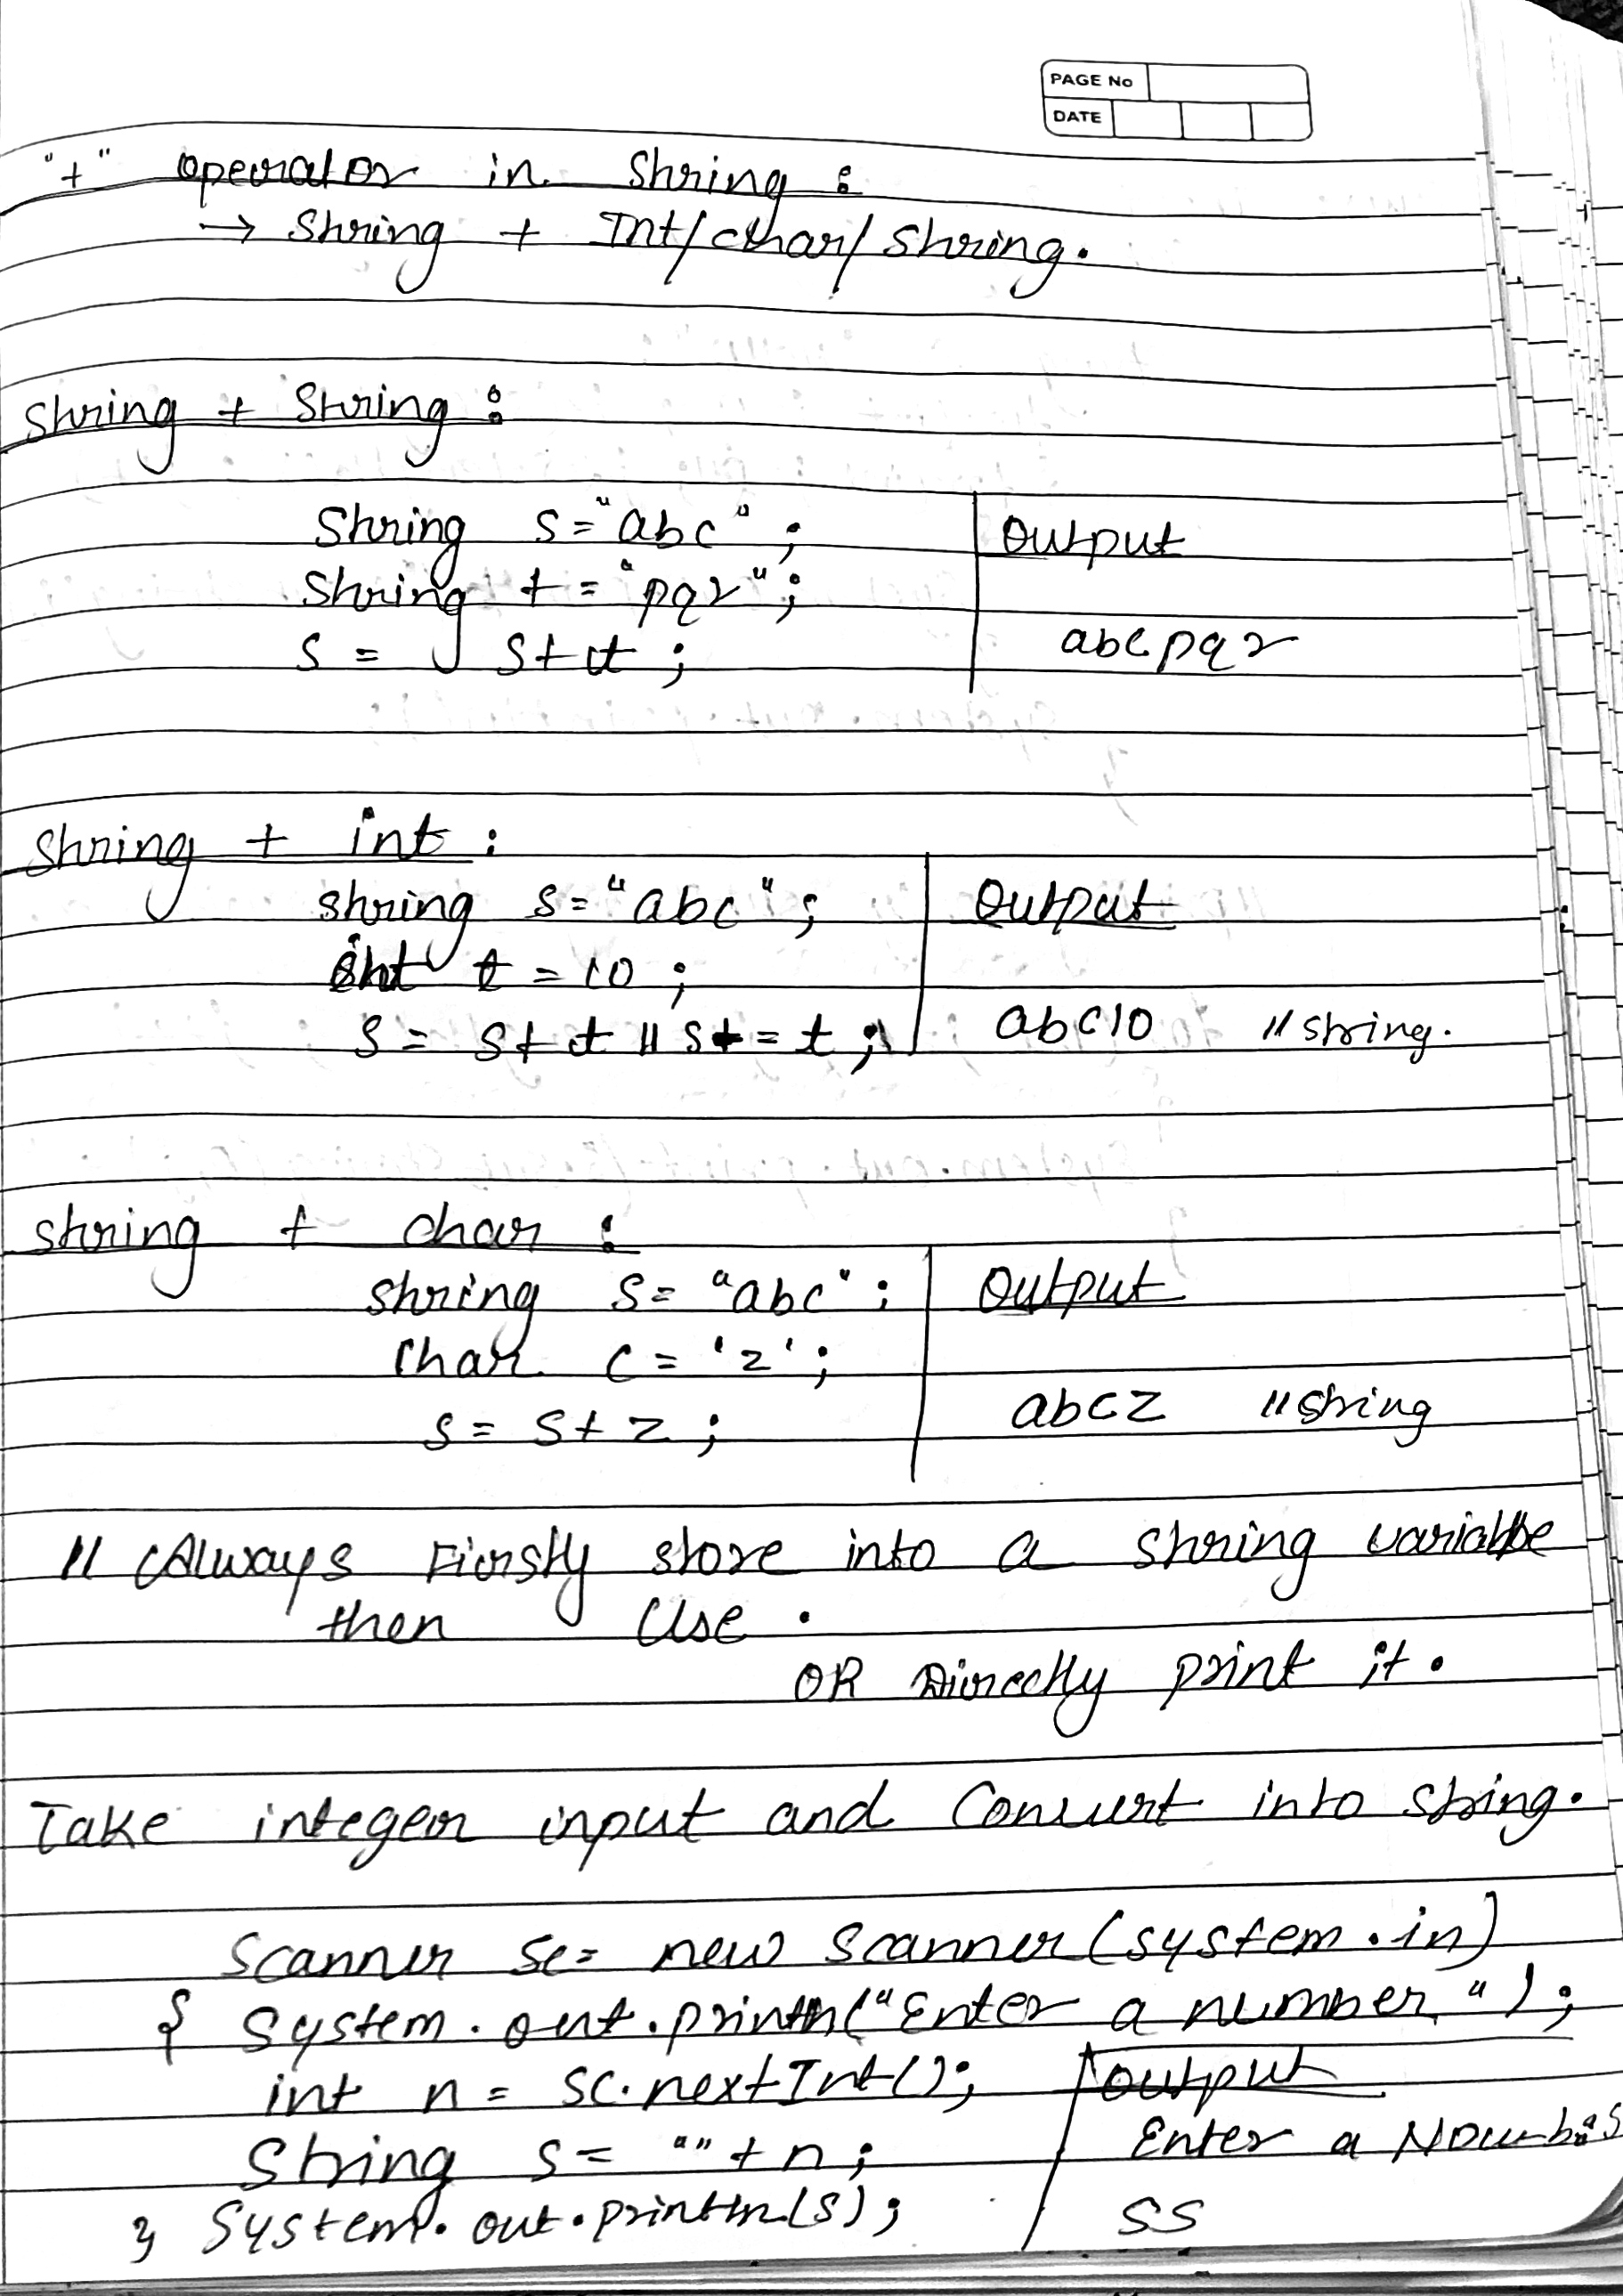 PAGE No
DATE
"+" operator in String :
→ String + Int/char/String.
String + String :
String s="abc" ;
Output
String t = "pqr" ;
s = s+t ;
abcpqr
String + int :
String s="abc" ;
Output
int t = 10 ;
s = s+t // s+=t ;
abc10 // string.
String + char :
String s= "abc" ;
Output
char c = 'z' ;
s = s+z ;
abcz // string
// Always Firstly store into a string variable
then Use .
OR Directly print it .
Take integer input and Convert into string.
Scanner sc= new Scanner (system.in)
{ System.out.println("Enter a number") ;
int n = sc.nextInt() ;
Output
String s = ""+n ;
Enter a
} System.out.println(s) ;
55